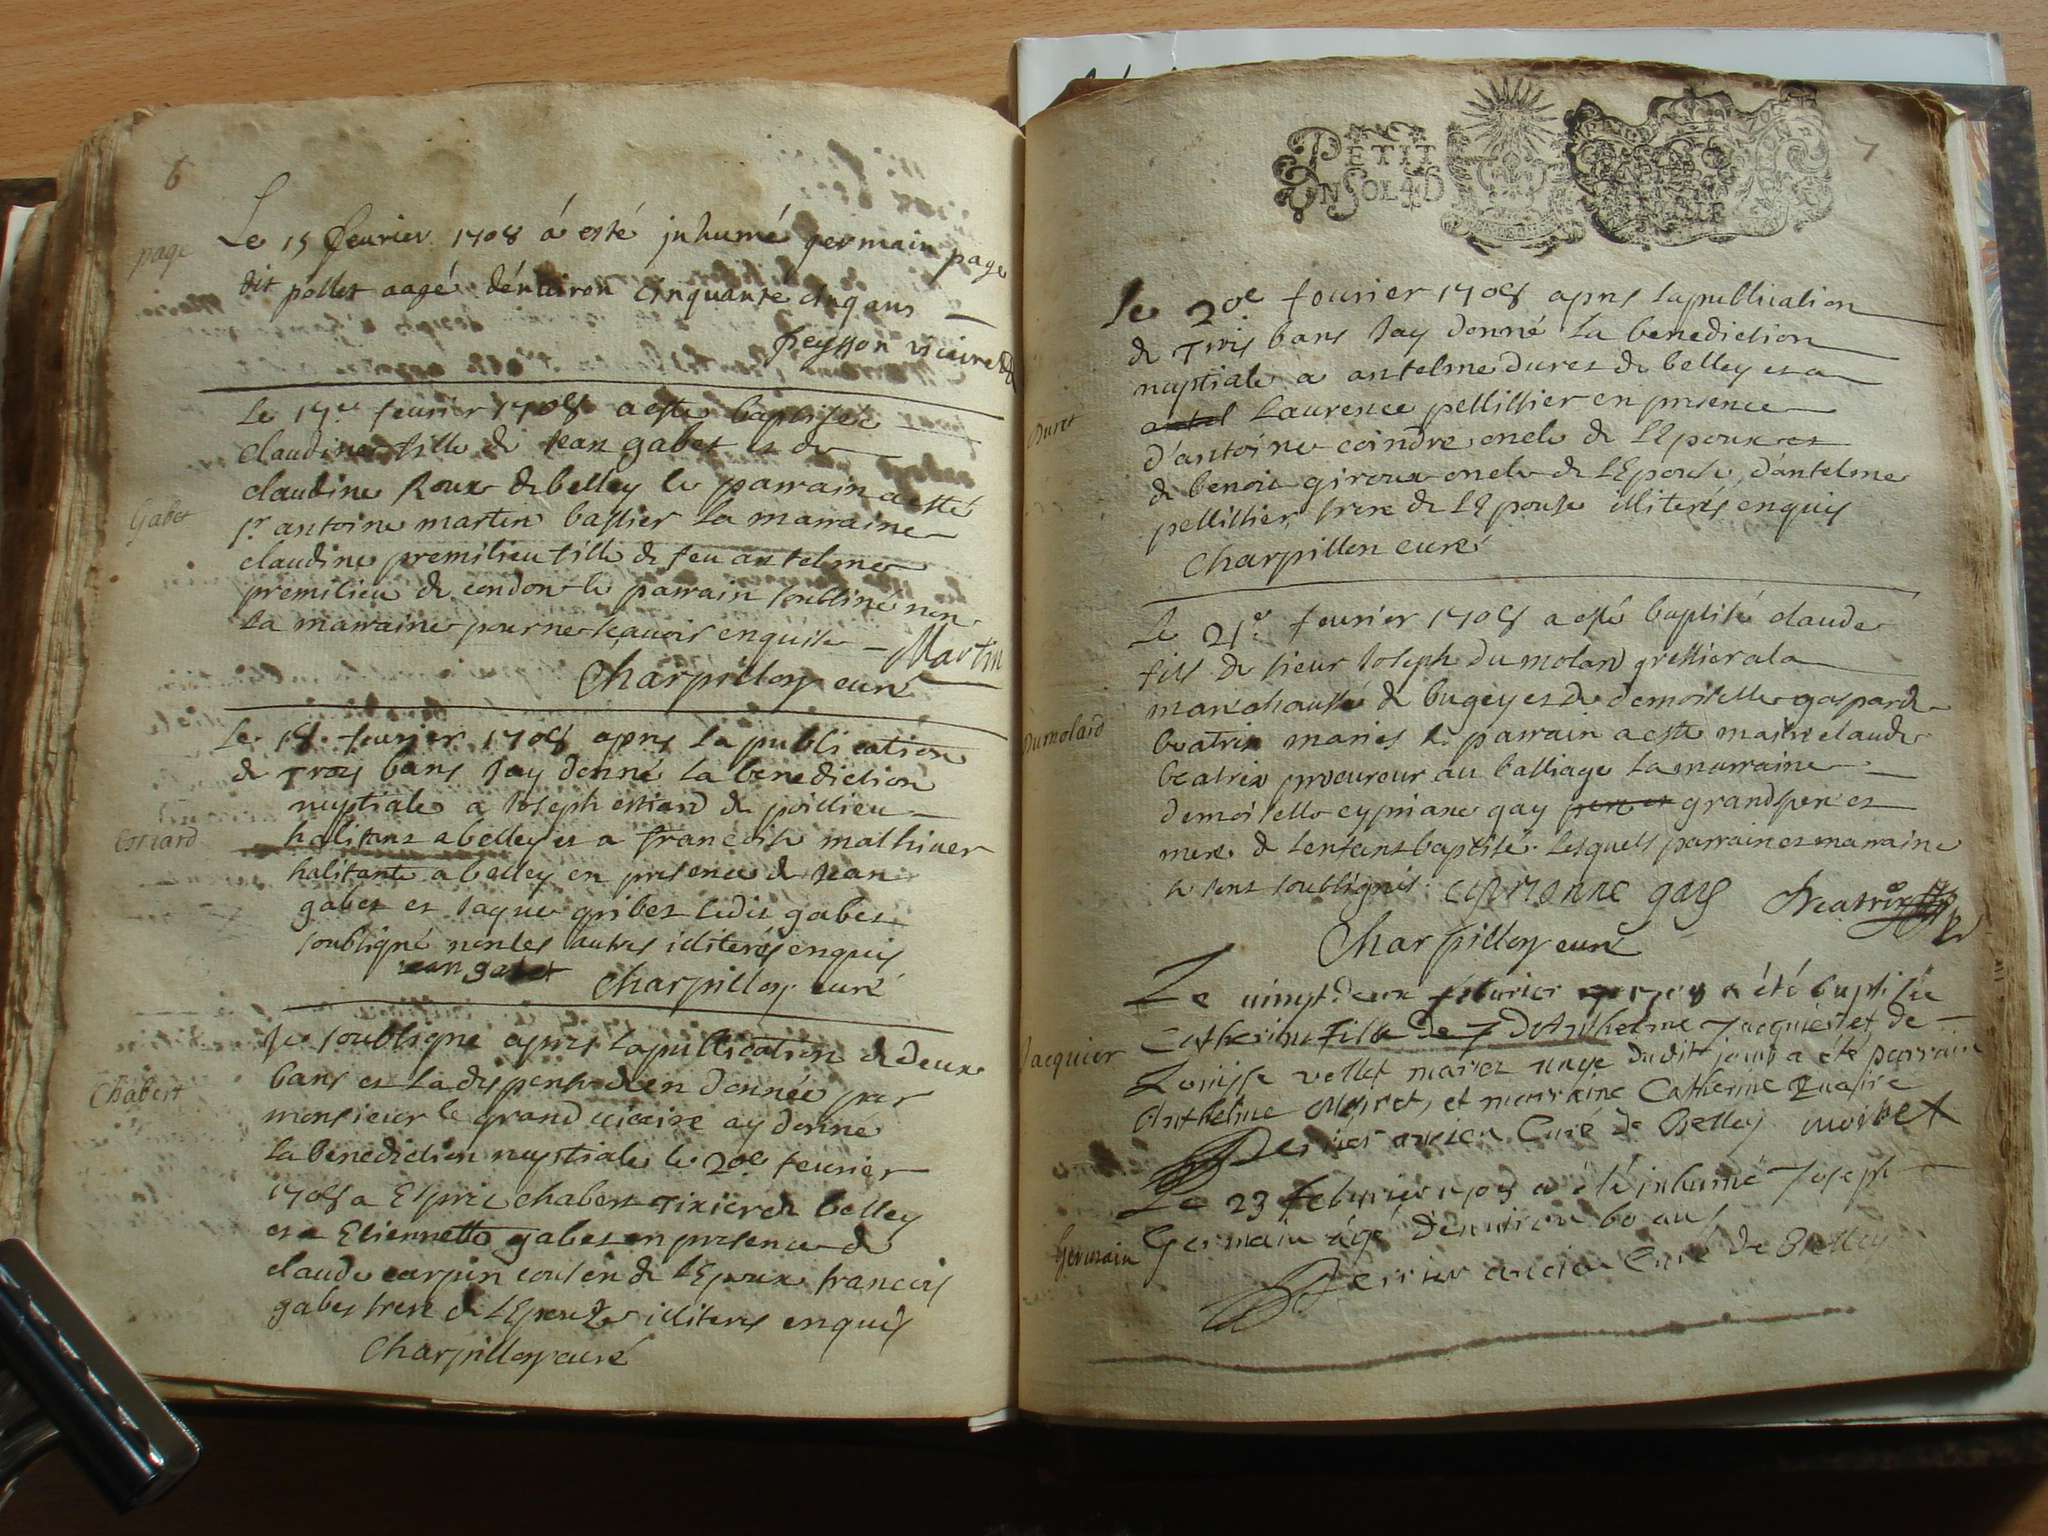 6
page
Le 15 feurier 1708 á esté jnhumé germain page
dit pollet aagé dénuiron cinquante cinq ans
peysson vicaire
Gabet
Le 17e feurier 1708 a este baptisée
claudine fille de Jean gabet et de
claudine Roux de belley le parrain a esté
sr antoine martin bastier la marraine
claudine premilieu fille de feu antelme
premilieu de condon le parrain soubsine non
la marraine pour ne sçauoir enquise
Martin
Charpillon curé
Essiard
Le 18 feurier 1708 apres la publication
de Trois bans Jay donné la benediction
nuptiale a Joseph essiard de poillieu
habitant a belley et a francoise mathieu
habitante a belley en presence de Jean
gabet et Jaque gribet ledit gabet
soubsigné non les autres illiterés enquis
Jean gabet
Charpillon curé
Chabert
Je soubsigné apres la publication de deux
bans et la dispense d'en donnée par
monsieur le grand vicaire ay donné
la benediction nuptiale le 20e feurier
1708 a Esprit chabert Tixier de belley
et a Etiennette gabet en presence de
claude carpin cousin de l'Epoux francois
gabet frere de l'Epouze illiterés enquis
Charpillon curé
7
PETIT
EN 2 SOLS
Duret
Le 20e feurier 1708 apres la publication
de Trois bans Jay donné la benediction
nuptiale a antelme duret de belley et a
Laurence pellissier en presence
d'antoine coindre oncle de l'Epoux et
de benoit giroux oncle de l'Epouse, d'antelme
pellissier frere de l'Epouse illiterés enquis
Charpillon curé
Dumolard
Le 21e feurier 1708 a esté baptisé claude
fils de sieur Joseph Dumolard greffier a la
marechaussé de bugey et de demoiselle gasparde
beatrix mariés le parrain a esté maitre claude
beatrix procureur au balliage la marraine
demoiselle cypriane gay pere et grandspere et
mere de lenfant baptisé. lesquels parrain et marraine
se sont soubsignés. cyprienne gay Beatrix
Charpillon curé
Jacquier
Le vingt deux feburier 1708 a été baptisée
Catherine fille de Anthelme Jacquier et de
Louisse vellet mariez naye dudit jour a été parrain
Anthelme Moiret, et marraine Catherine
Perrier ancien Curé de Belley moiret
Germain
Le 23 feburier 1708 a été inhumé Joseph
Germain âgé d'enuiron 60 ans
Perrier ancien Curé de Belley